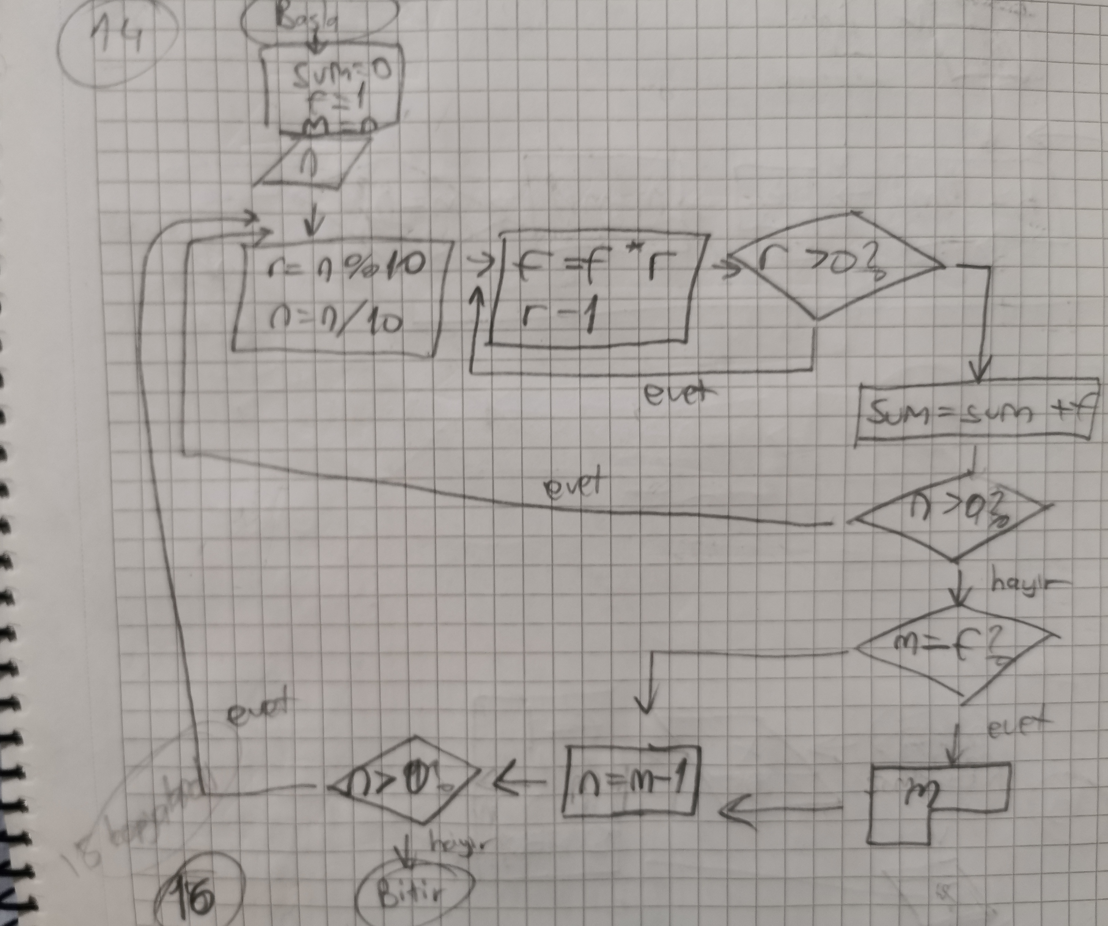 14
Başla
sum=0
f=1
m=n
n
r=n%10
n=n/10
f=f*r
r-1
r>0?
evet
sum=sum+f
n>0?
evet
hayır
m=f?
evet
m
n=m-1
n>0?
evet
hayır
Bitir
16